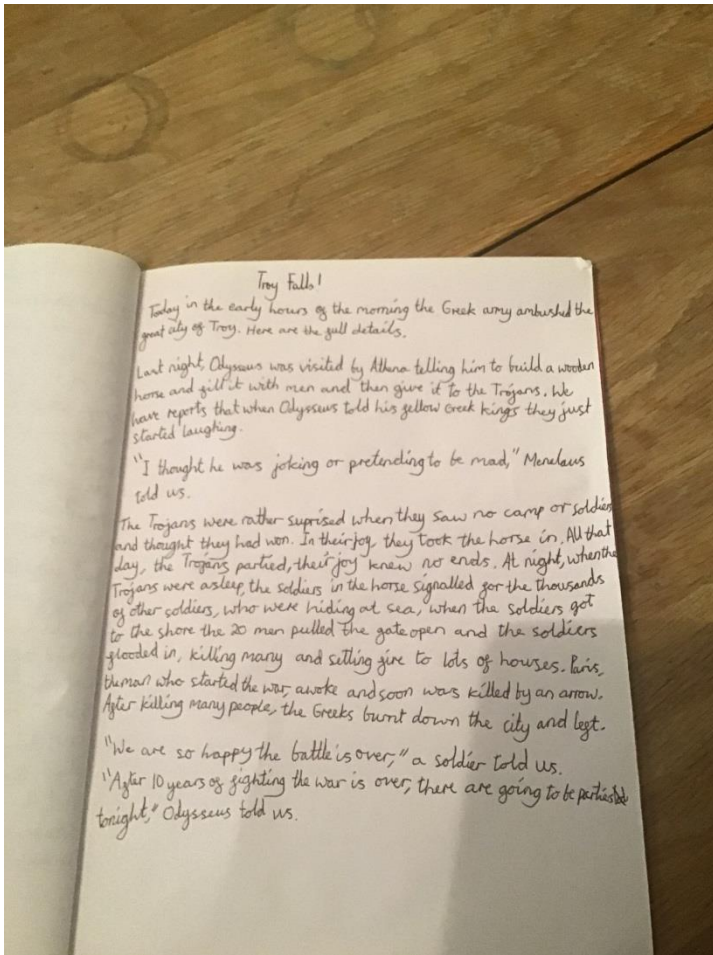 Troy Falls!
Today in the early hours of the morning the Greek army ambushed the
great city of Troy. Here are the full details.
Last night, Odysseus was visited by Athena telling him to build a wooden
horse and fill it with men and then give it to the Trojans. We
have reports that when Odysseus told his fellow Greek kings they just
started laughing.
"I thought he was joking or pretending to be mad," Menelaus
told us.
The Trojans were rather suprised when they saw no camp or soldiers
and thought they had won. In their joy, they took the horse in. All that
day, the Trojans partied, their joy knew no ends. At night, when the
Trojans were asleep, the soldiers in the horse signalled for the thousands
of other soldiers, who were hiding at sea, when the soldiers got
to the shore the 20 men pulled the gate open and the soldiers
flooded in, killing many and setting fire to lots of houses. Paris,
the man who started the war, awoke and soon was killed by an arrow.
After killing many people, the Greeks burnt down the city and left.
"We are so happy the battle is over," a soldier told us.
"After 10 years of fighting the war is over, there are going to be parties
tonight," Odysseus told us.